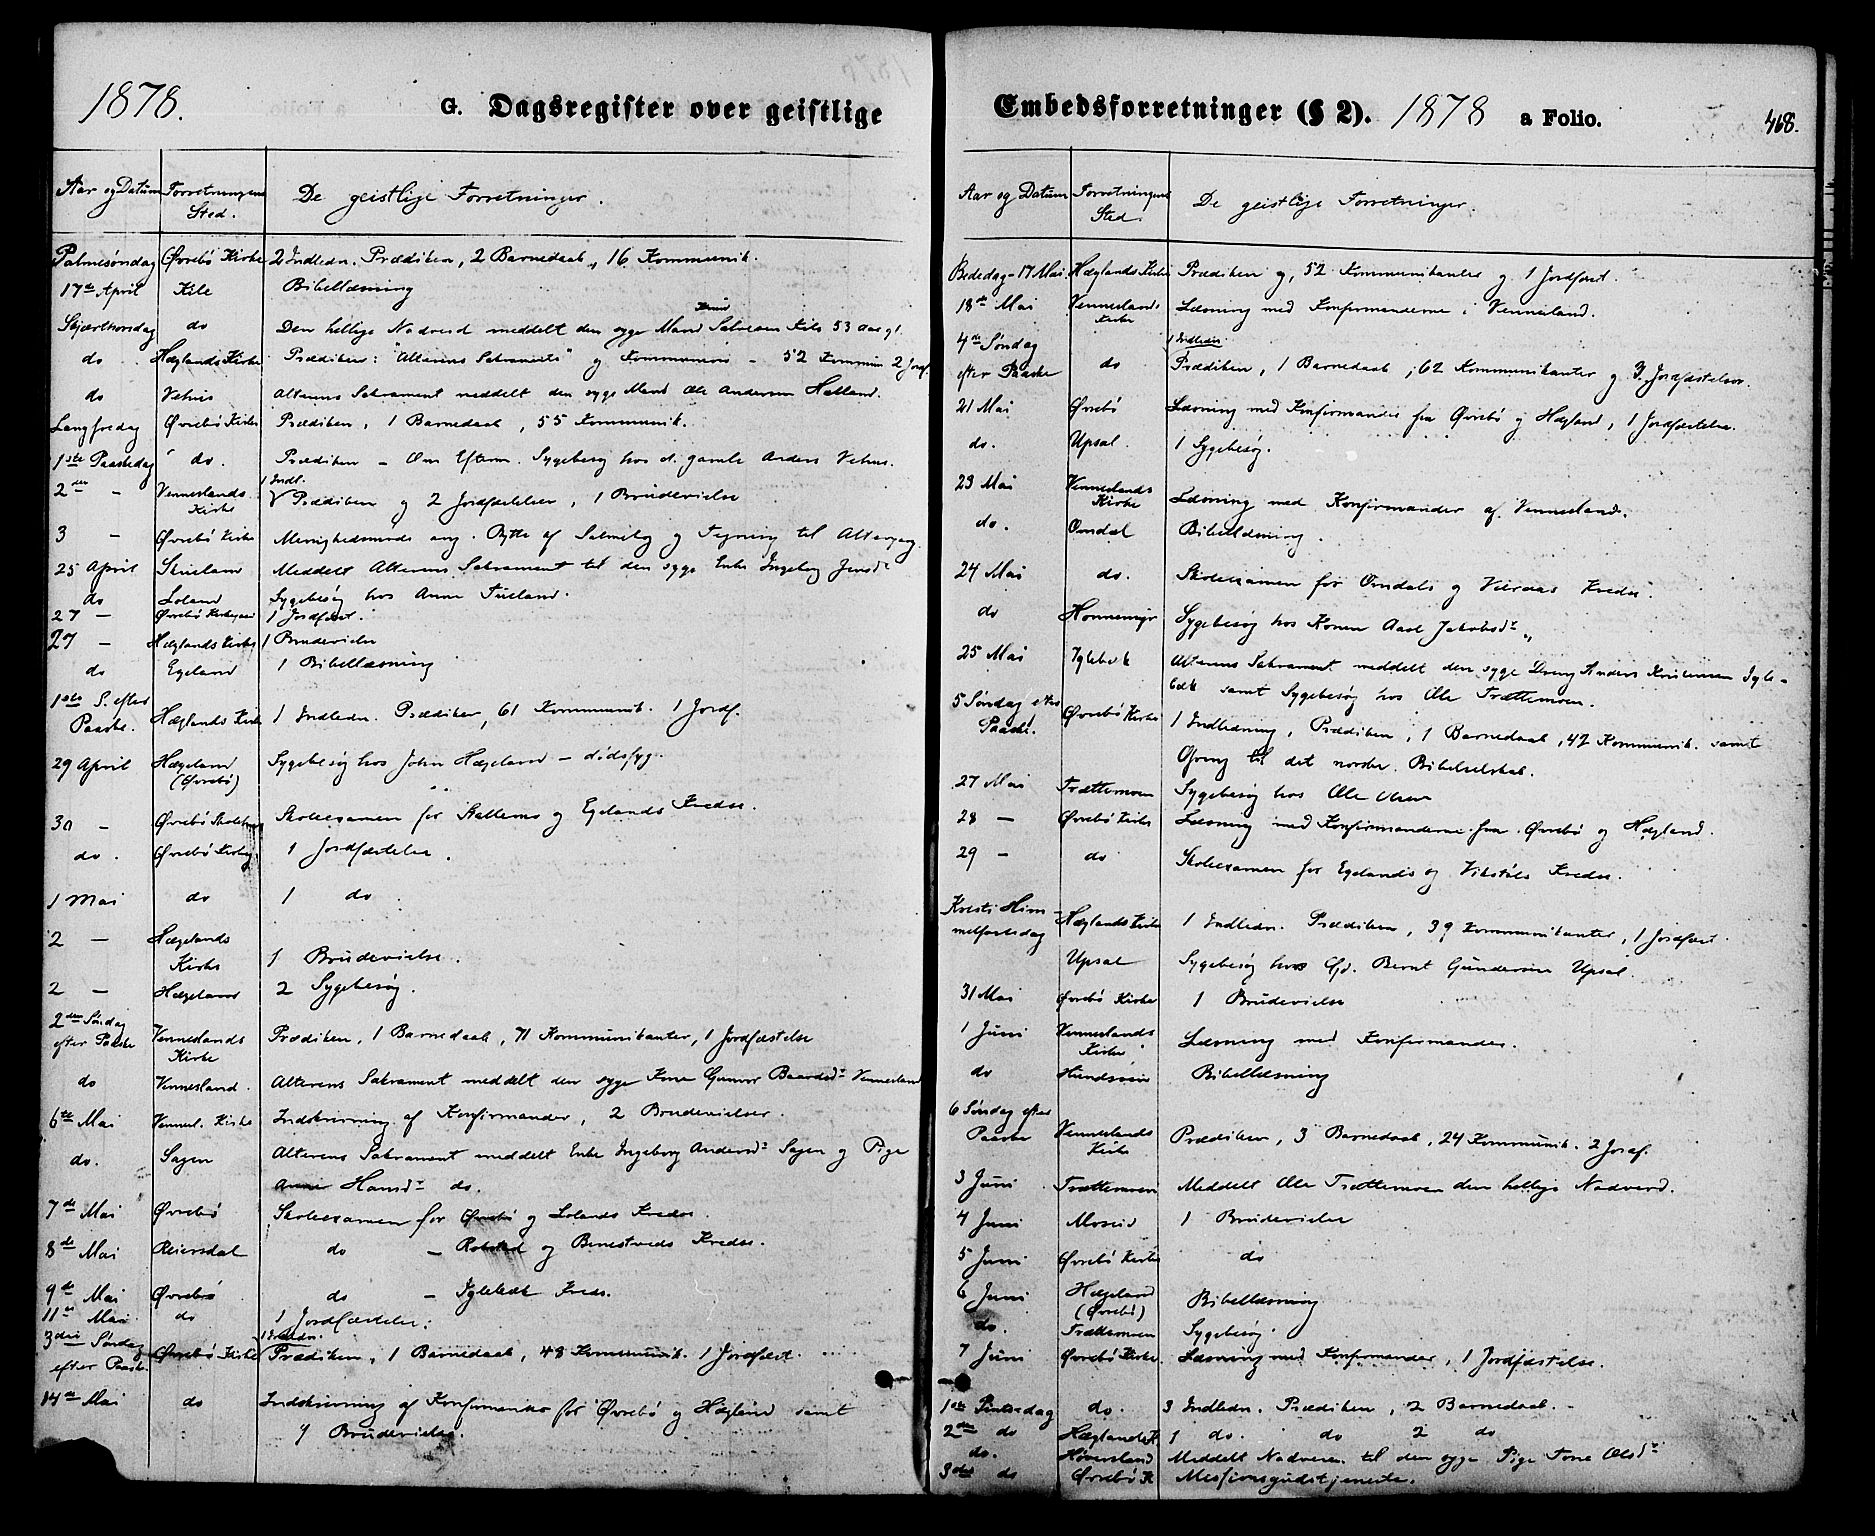 1878.
G. Dagsregister over geistlige
Aar og Datum Forretningens Sted. De geistlige Forretninger.
Palmesøndag Øvrebø Kirke 2 Indledn. Prædiken, 2 Barnedaab, 16 Kommunik.
17de April Kile Bibellæsning
Skjærthorsdag do Den hellige Nadverd meddelt den syge Mand Salvesen Kile 53 Aar gl.
do Hæglands Kirke Prædiken: "Alterens Sakramente" og Kommunion - 52 Kommun 2 Jordf.
do Vehus Alterens Sakrament meddelt den syge Mand Ole Andersen Helland.
Langfredag Øvrebø Kirke Prædiken, 1 Barnedaab, 55 Kommunik.
1ste Paaskedag do. Prædiken - Om Efterm. Sygebesøg hos d. gamle Anders Vehus.
1 Indl.
2den - Venneslands Kirke Prædiken og 2 Jordfæstelser, 1 Brudevielse
3 - Øvrebø Kirke Menighedsmøde ang. Bytte af Salmebog og Tegning til Altergang
25 April Skueland Meddelt Alterens Sakrament til den syge Enke Ingeborg Jensdr
do Loland Sygebesøg hos Anne Tueland.
27 - Øvrebø Kirkegaard 1 Jordfæst.
27 - Hæglands Kirke 1 Brudevielse
do Egeland 1 Bibellæsning
1ste S. efter Paaske. Hæglands Kirke 1 Indledn. Prædiken, 61 Kommunik. 1 Jordf.
29 April Hægeland (Øvrebø) Sygebesøg hos John Hægeland - dødssyg.
30 - Øvrebø Skolehus Skoleexamen for Stallems og Egelands Kredse.
do. Øvrebø Kirkeg. 1 Jordfæstelse.
1 Mai do 1 do
2 - Hægelands Kirke 1 Brudevielse.
2 - Hægeland 2 Sygebesøg.
2den Søndag efter Paaske Venneslands Kirke Prædiken, 1 Barnedaab, 71 Kommunikanter, 1 Jordfæstelse
do Vennesland. Alterens Sakrament meddelt den syge Kone Gunvor Baardsdr Vennesland
6te Mai Vennesl. Kirke Indskrivning af Konfirmander, 2 Brudevielser.
do. Sagen Alterens Sakrament meddelt Enke Ingeborg Andersdr Sagen og Pige
Anne Hansdr do.
7de Mai Øvrebø Skoleexamen for Øvrebø og Lolands Kredse.
8de Mai Reiersdal do - Robstad og Benestveds Kredse.
9de Mai Øvrebø do - Iglebæk Kreds.
11te Mai do 1 Jordfæstelse.
1 Indledn.
3die Søndag efter Paaske Øvrebø Kirke Prædiken, 1 Barnedaab, 48 Kommunik. 1 Jordfæst.
14de Mai do Indskrivning af Konfirmander for Øvrebø og Hægland samt
Brudevielse.
Embedsforretninger (§ 2). 1878 a Folio. 468.
Aar og Datum Forretningens Sted. De geistlige Forretninger.
Bededag-17 Mai Hæglands Kirke Prædiken og 52 Kommunikanter og 1 Jordfæst.
18de Mai Venneslands Kirke Læsning med Konfirmanderne i Vennesland.
1 Indledn.
4de Søndag efter Paaske do Prædiken, 1 Barnedaab, 62 Kommunikanter og 3 Jordfæstelser.
21 Mai Øvrebø Læsning med Konfirmander fra Øvrebø og Hægland, 1 Jordfæstelse.
do. Upsal. 1 Sygebesøg.
23 Mai Venneslands Kirke Læsning med Konfirmander af Vennesland.
do. Omdal Bibellæsning.
24 Mai do. Skoleexamen for Omdals og Vieraas Kredse.
do Honnemyr Sygebesøg hos Konen Aase Jakobsdr
25 Mai Iglebæk Alterens Sakrament meddelt den syge Dreng Anders Knutensen Igle-
bæk samt Sygebesøg hos Ole Trættemoen.
5 Søndag efter Paaske. Øvrebø Kirke 1 Indledning, Prædiken, 1 Barnedaab, 42 Kommunik. samt
Ofring til det norske Bibelselskab.
27 Mai Trættemoen Sygebesøg hos Ole Olsen
28 - Øvrebø Kirke Læsning med Konfirmanderne fra Øvrebø og Hægland.
29 - do Skoleexamen for Egelands og Vikstøls Kredse.
Kristi Himmelfartsdag Hæglands Kirke 1 Indledn. Prædiken, 39 Kommunikanter, 1 Jordfæst.
Upsal Sygebesøg hos Gd. Bernt Gundersen Upsal.
31 Mai Øvrebø Kirke 1 Brudevielse
1 Juni Venneslands Kirke Læsning med Konfirmander.
do Hundsøen Bibellæsning
6 Søndag efter Paaske Venneslands Kirke Prædiken, 3 Barnedaab, 24 Kommunik. 2 Jordf.
3 Juni Trættemoen Meddelt Ole Trættemoen den hellige Nadverd.
4 Juni Moseid 1 Brudevielse
5 Juni Øvrebø Kirke do
6 Juni Hægeland (Øvrebø) Bibellæsning
do. Trættemoen Sygebesøg.
7 Juni Øvrebø Kirke. Læsning med Konfirmander, 1 Jordfæstelse.
1ste Pintsedag do. 3 Indledn. Prædiken, 2 Barnedaab. -
2den do Hæglands K. 1 do. do 2 do
do. Høversland Meddelt Nadveren til den syge Pige Tone Olsdr
3die do Øvrebø K Missionsgudstjeneste.